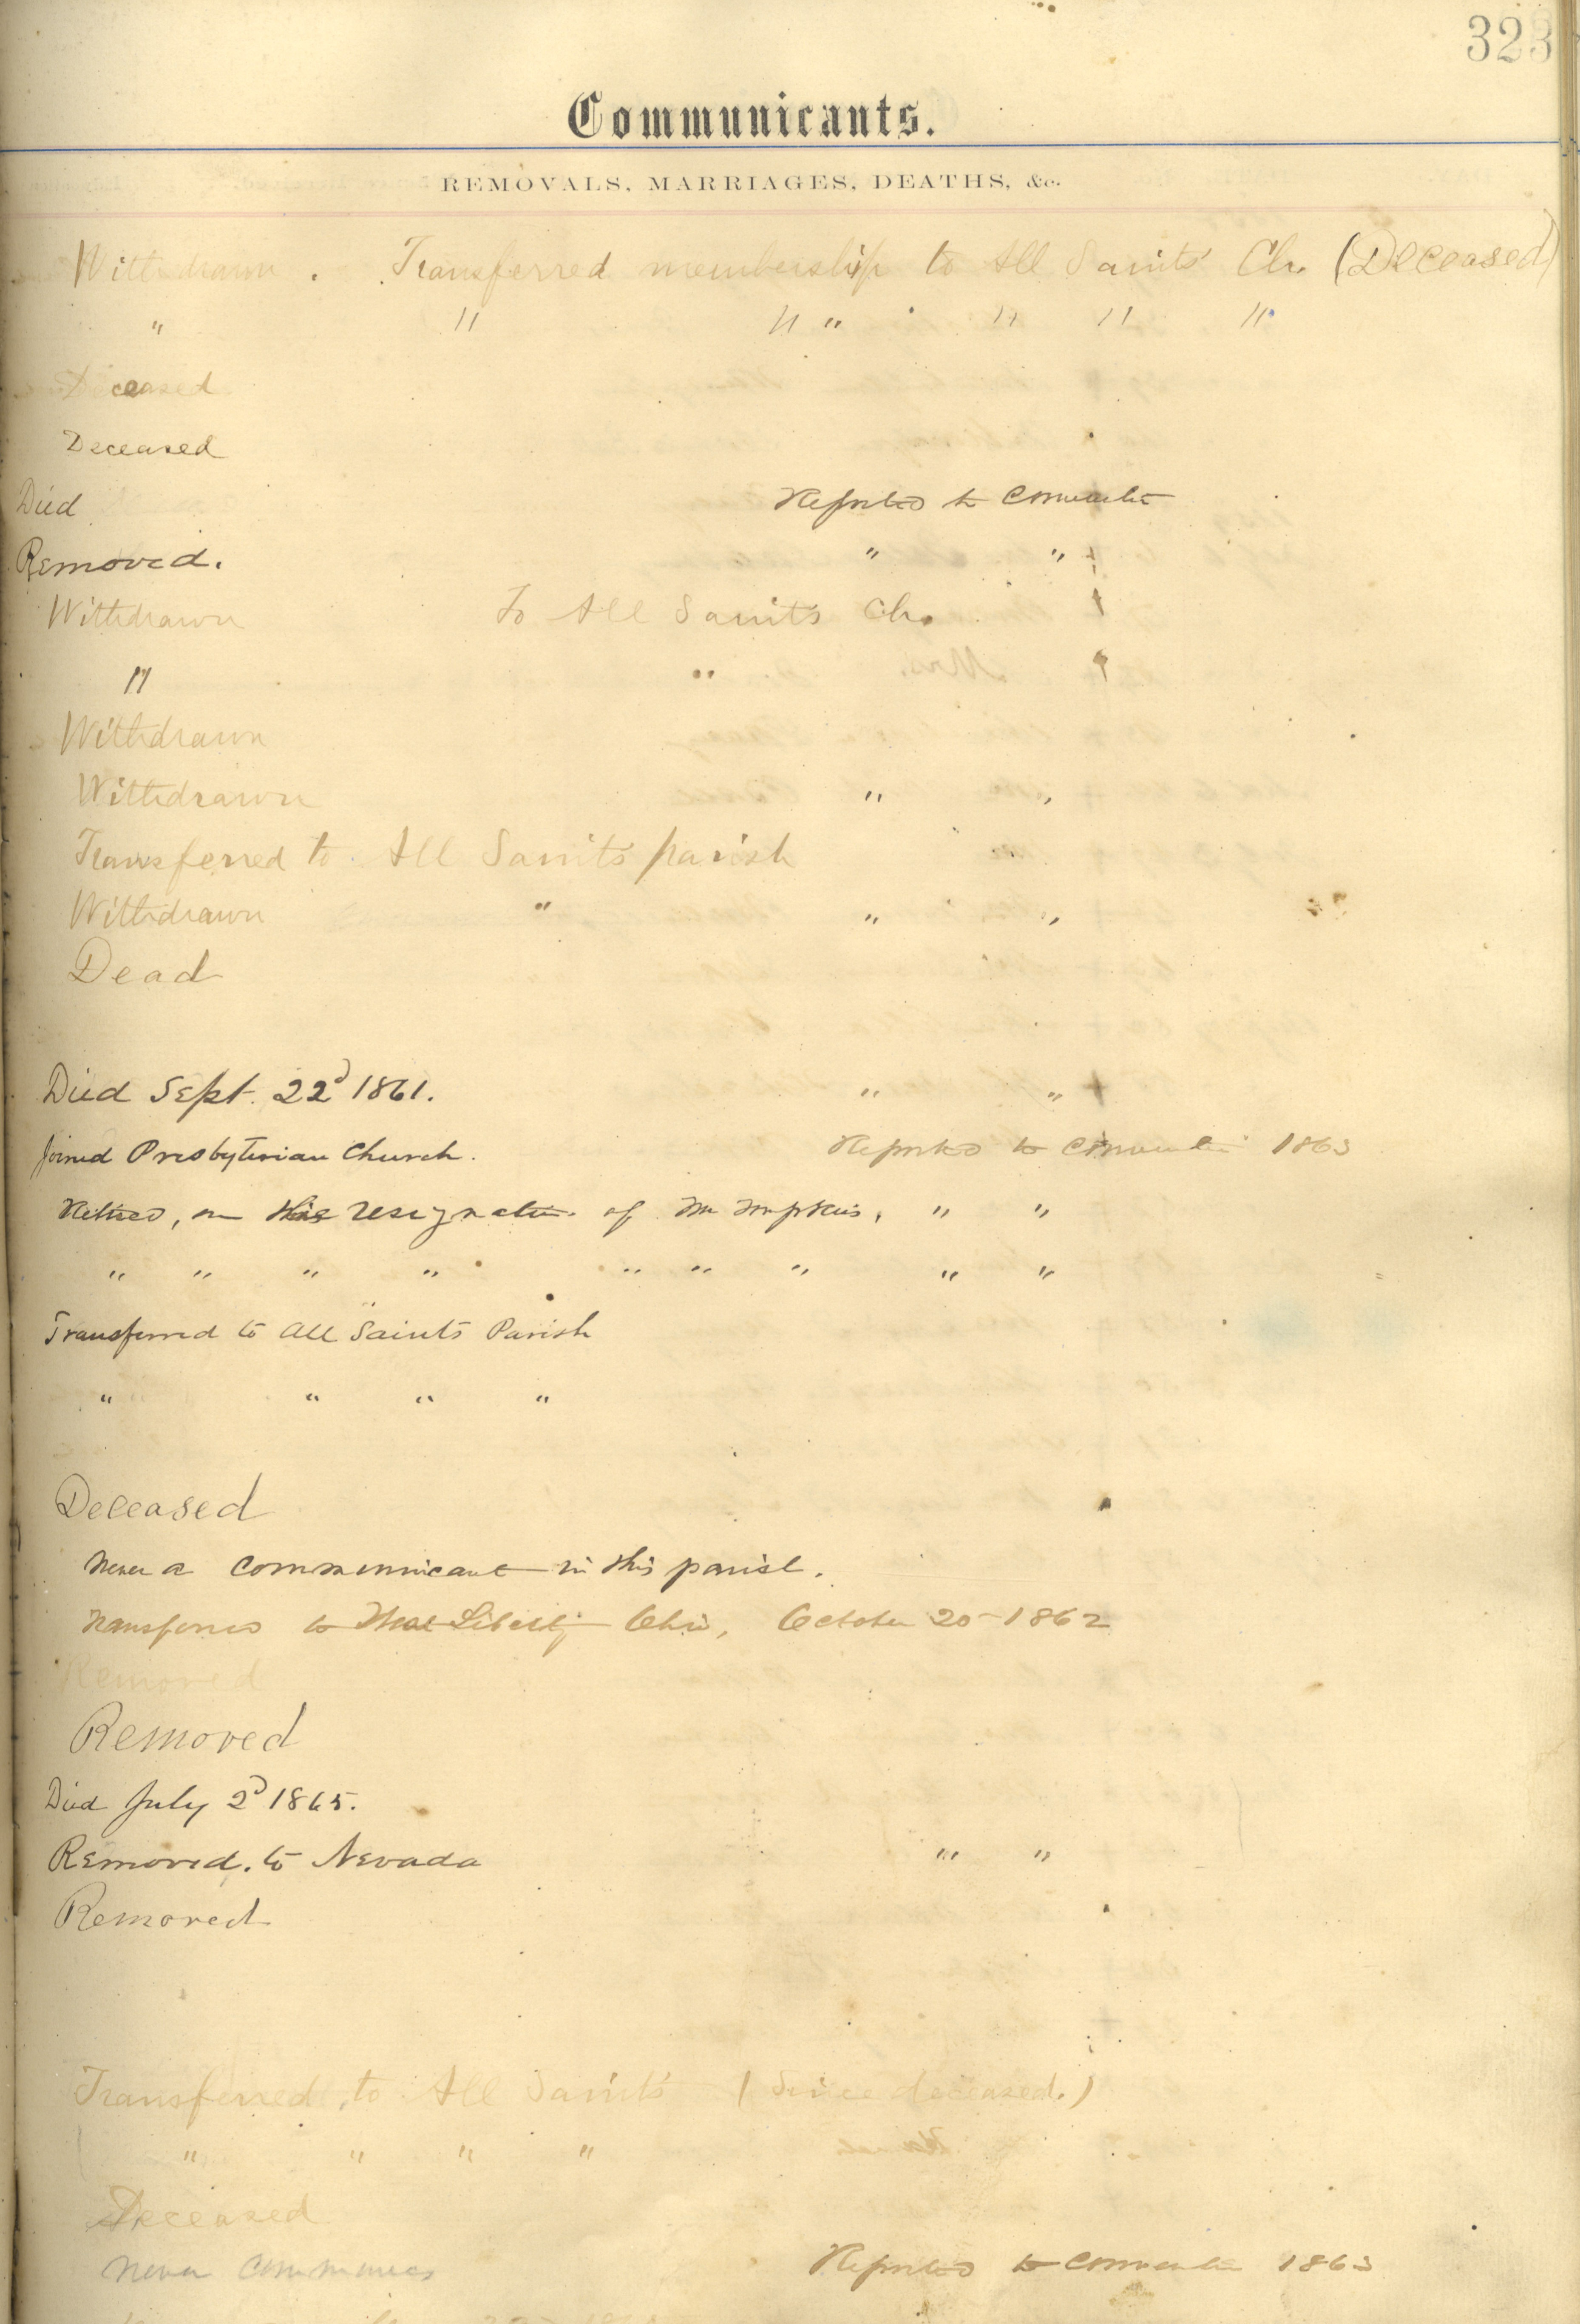 323
Communicants.
REMOVALS, MARRIAGES, DEATHS, &c.
Withdrawn . Transferred membership to All Saints' Ch. (Deceased)
" " " " " " "
Deceased
Deceased
Died Reported to Convention
Removed. " "
Withdrawn To All Saints Ch.
" "
Withdrawn
Withdrawn " "
Transferred to All Saints parish
Withdrawn " " "
Dead
Died Sept. 22d 1861. " "
Joined Presbyterian Church. Reported to Convention 1863
Retired, on resignation of Mr " "
" " " " " " " " "
Transferred to All Saints Parish
" " " "
Deceased
Never a communicant in this parish.
Transferred to West Liberty Ohio, October 20 - 1862
Removed
Removed
Died July 2d 1865.
Removed. to Nevada " "
Removed
Transferred to All Saints (Since deceased.)
" " " "
Deceased
Never Reported to Convention 1863